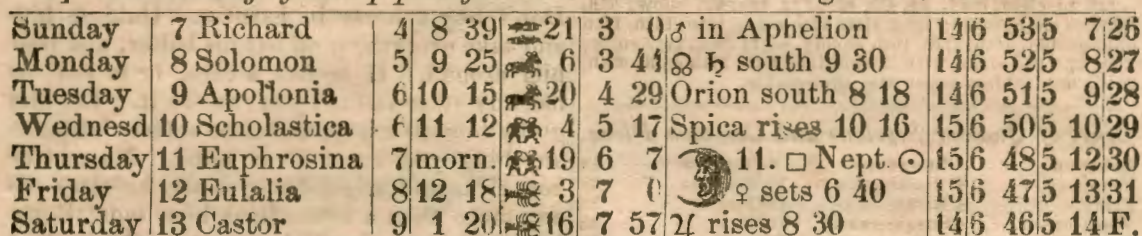 Sunday 7 Richard 4 8 39 21 3 0 ♂ in Aphelion 14 6 53 5 7 26
Monday 8 Solomon 5 9 25 6 3 41 ☊ ♄ south 9 30 14 6 52 5 8 27
Tuesday 9 Apollonia 6 10 15 20 4 29 Orion south 8 18 14 6 51 5 9 28
Wednesd 10 Scholastica 6 11 12 4 5 17 Spica rises 10 16 15 6 50 5 10 29
Thursday 11 Euphrosina 7 morn. 19 6 7 11. □ Nept. ☉ 15 6 48 5 12 30
Friday 12 Eulalia 8 12 18 3 7 0 ♀ sets 6 40 15 6 47 5 13 31
Saturday 13 Castor 9 1 20 16 7 57 ♃ rises 8 30 14 6 46 5 14 F.